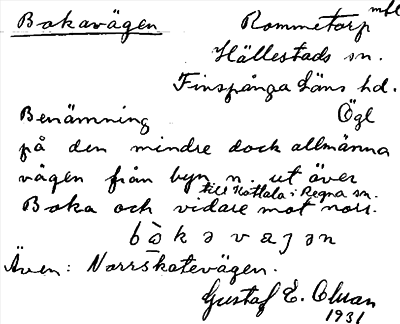 Bokavägen
Rommetorp mfl
Hällestads sn.
Finspånga läns hd.
Ögl
Benämning
på den mindre dock allmänna
vägen från byn n. ut över
till Kottala i Regna sn.
Boka och vidare mot norr.
Även: Norrskatevägen.
Gustaf E.
1931